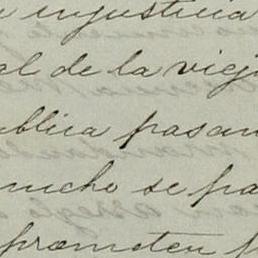 injusticia
al de la viej
ública pasan
mucho se pa
prometer p